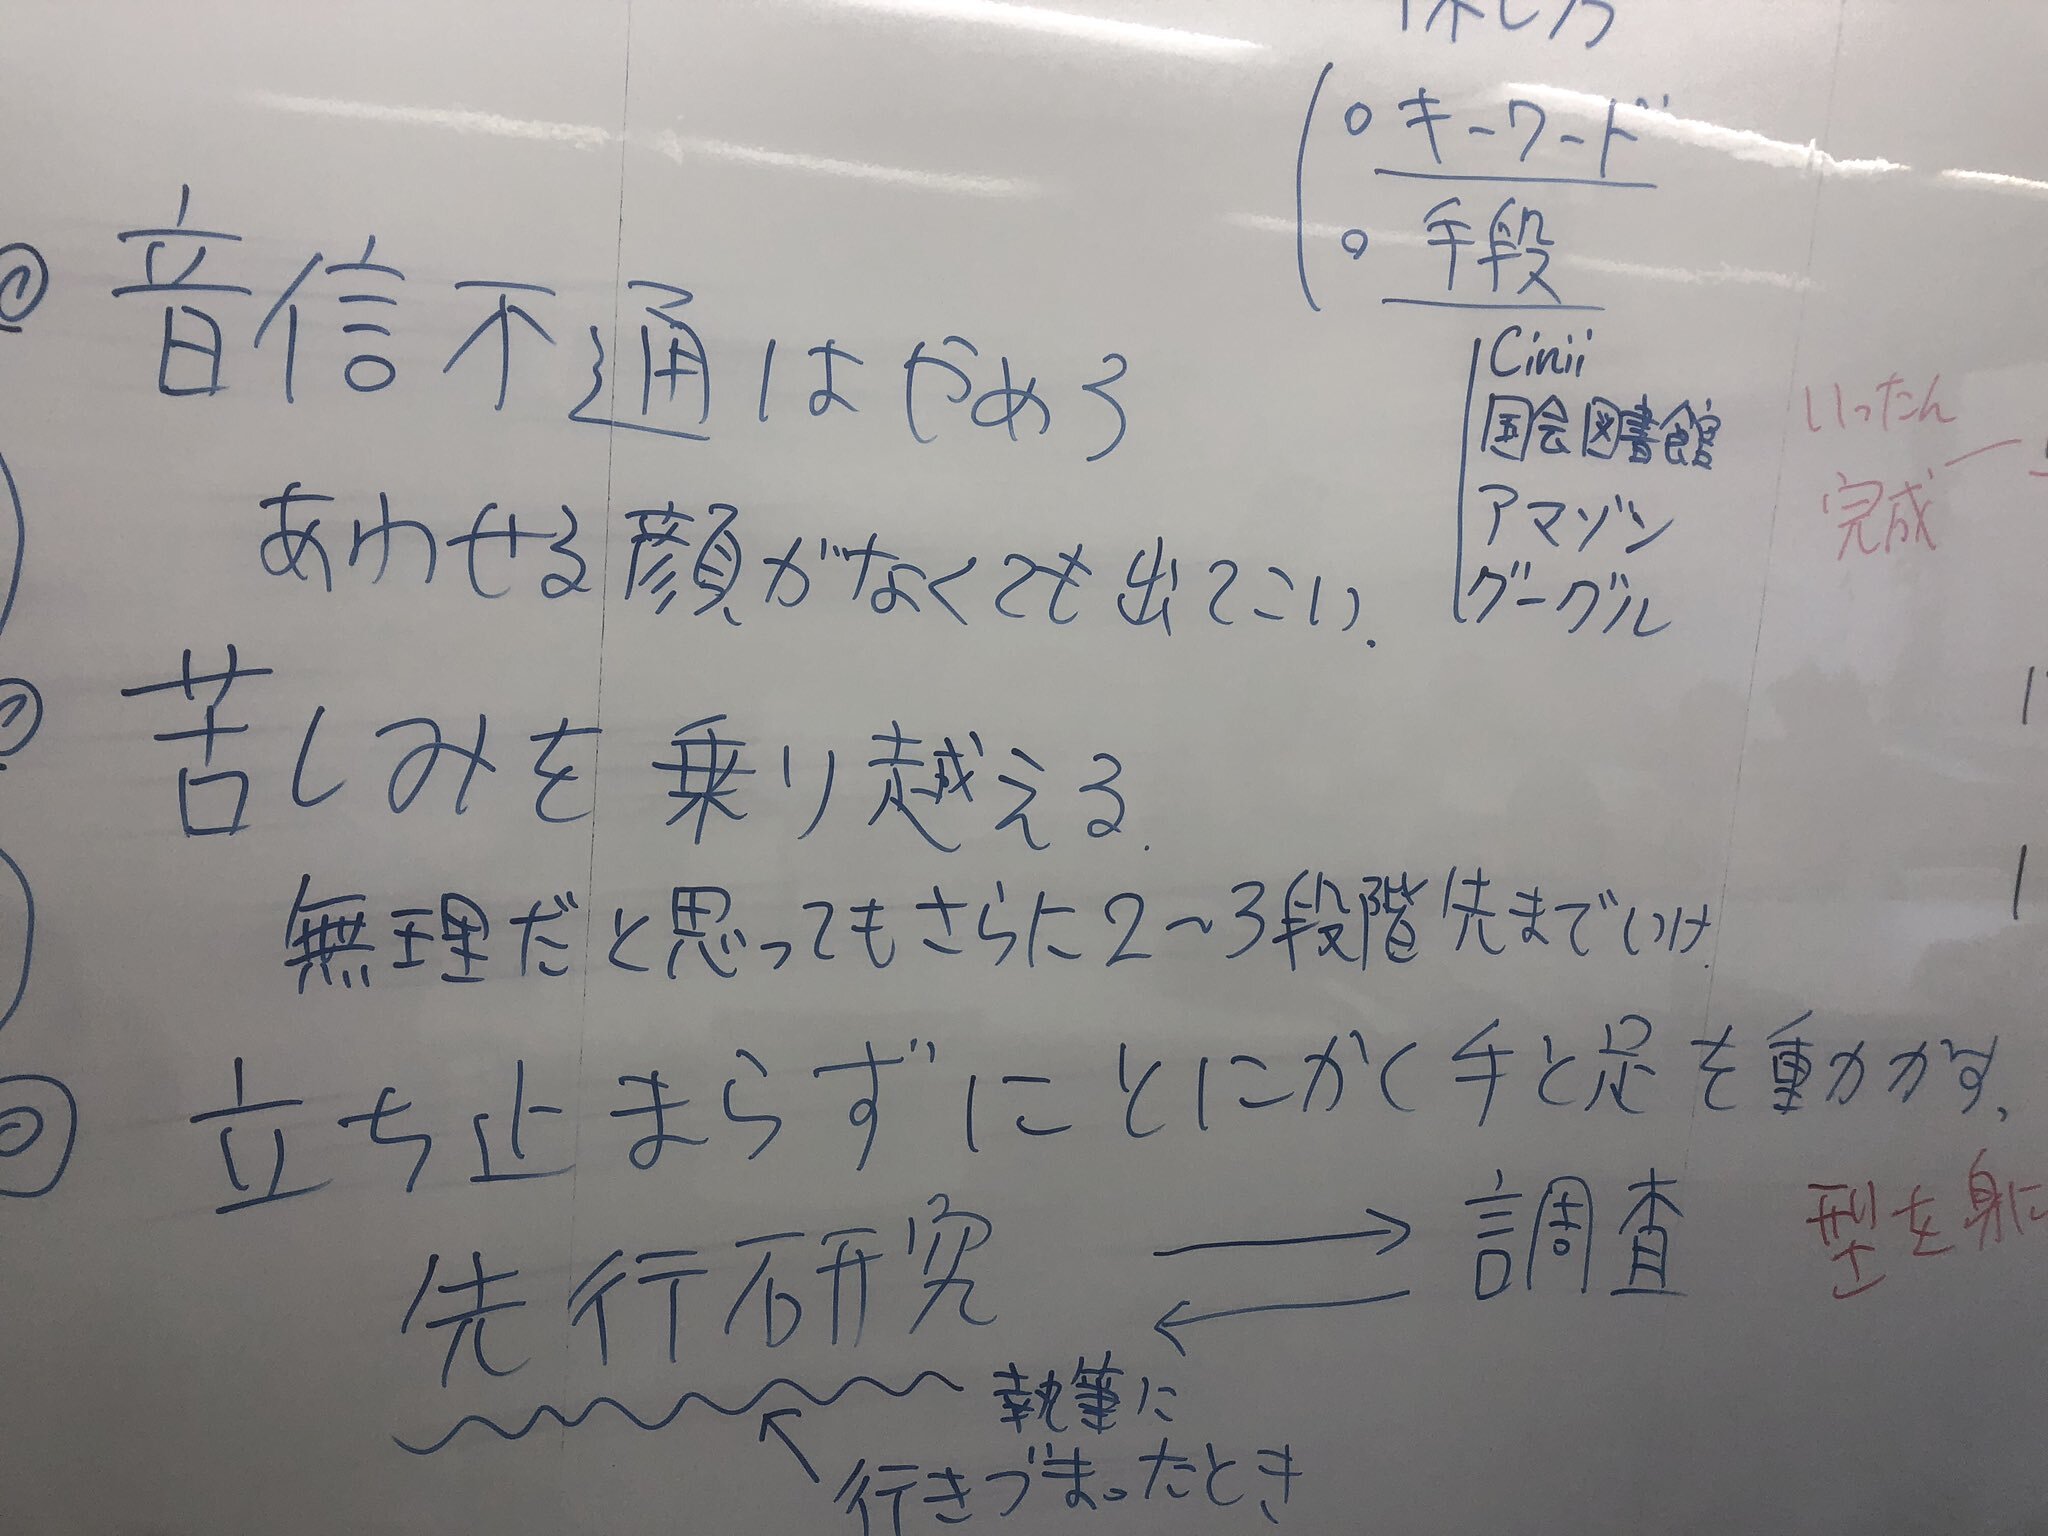 探し方
○ キーワード
○ 手段
Cinii
国会図書館
アマゾン
グーグル
いったん
完成
◎ 音信不通はやめろ
あわせる顔がなくても出てこい.
◎ 苦しみを乗り越える.
無理だと思ってもさらに2〜3段階先までいけ.
◎ 立ち止まらずにとにかく手と足を動かす、
先行研究 → ← 調査
型を身に
執筆に
行きづまったとき